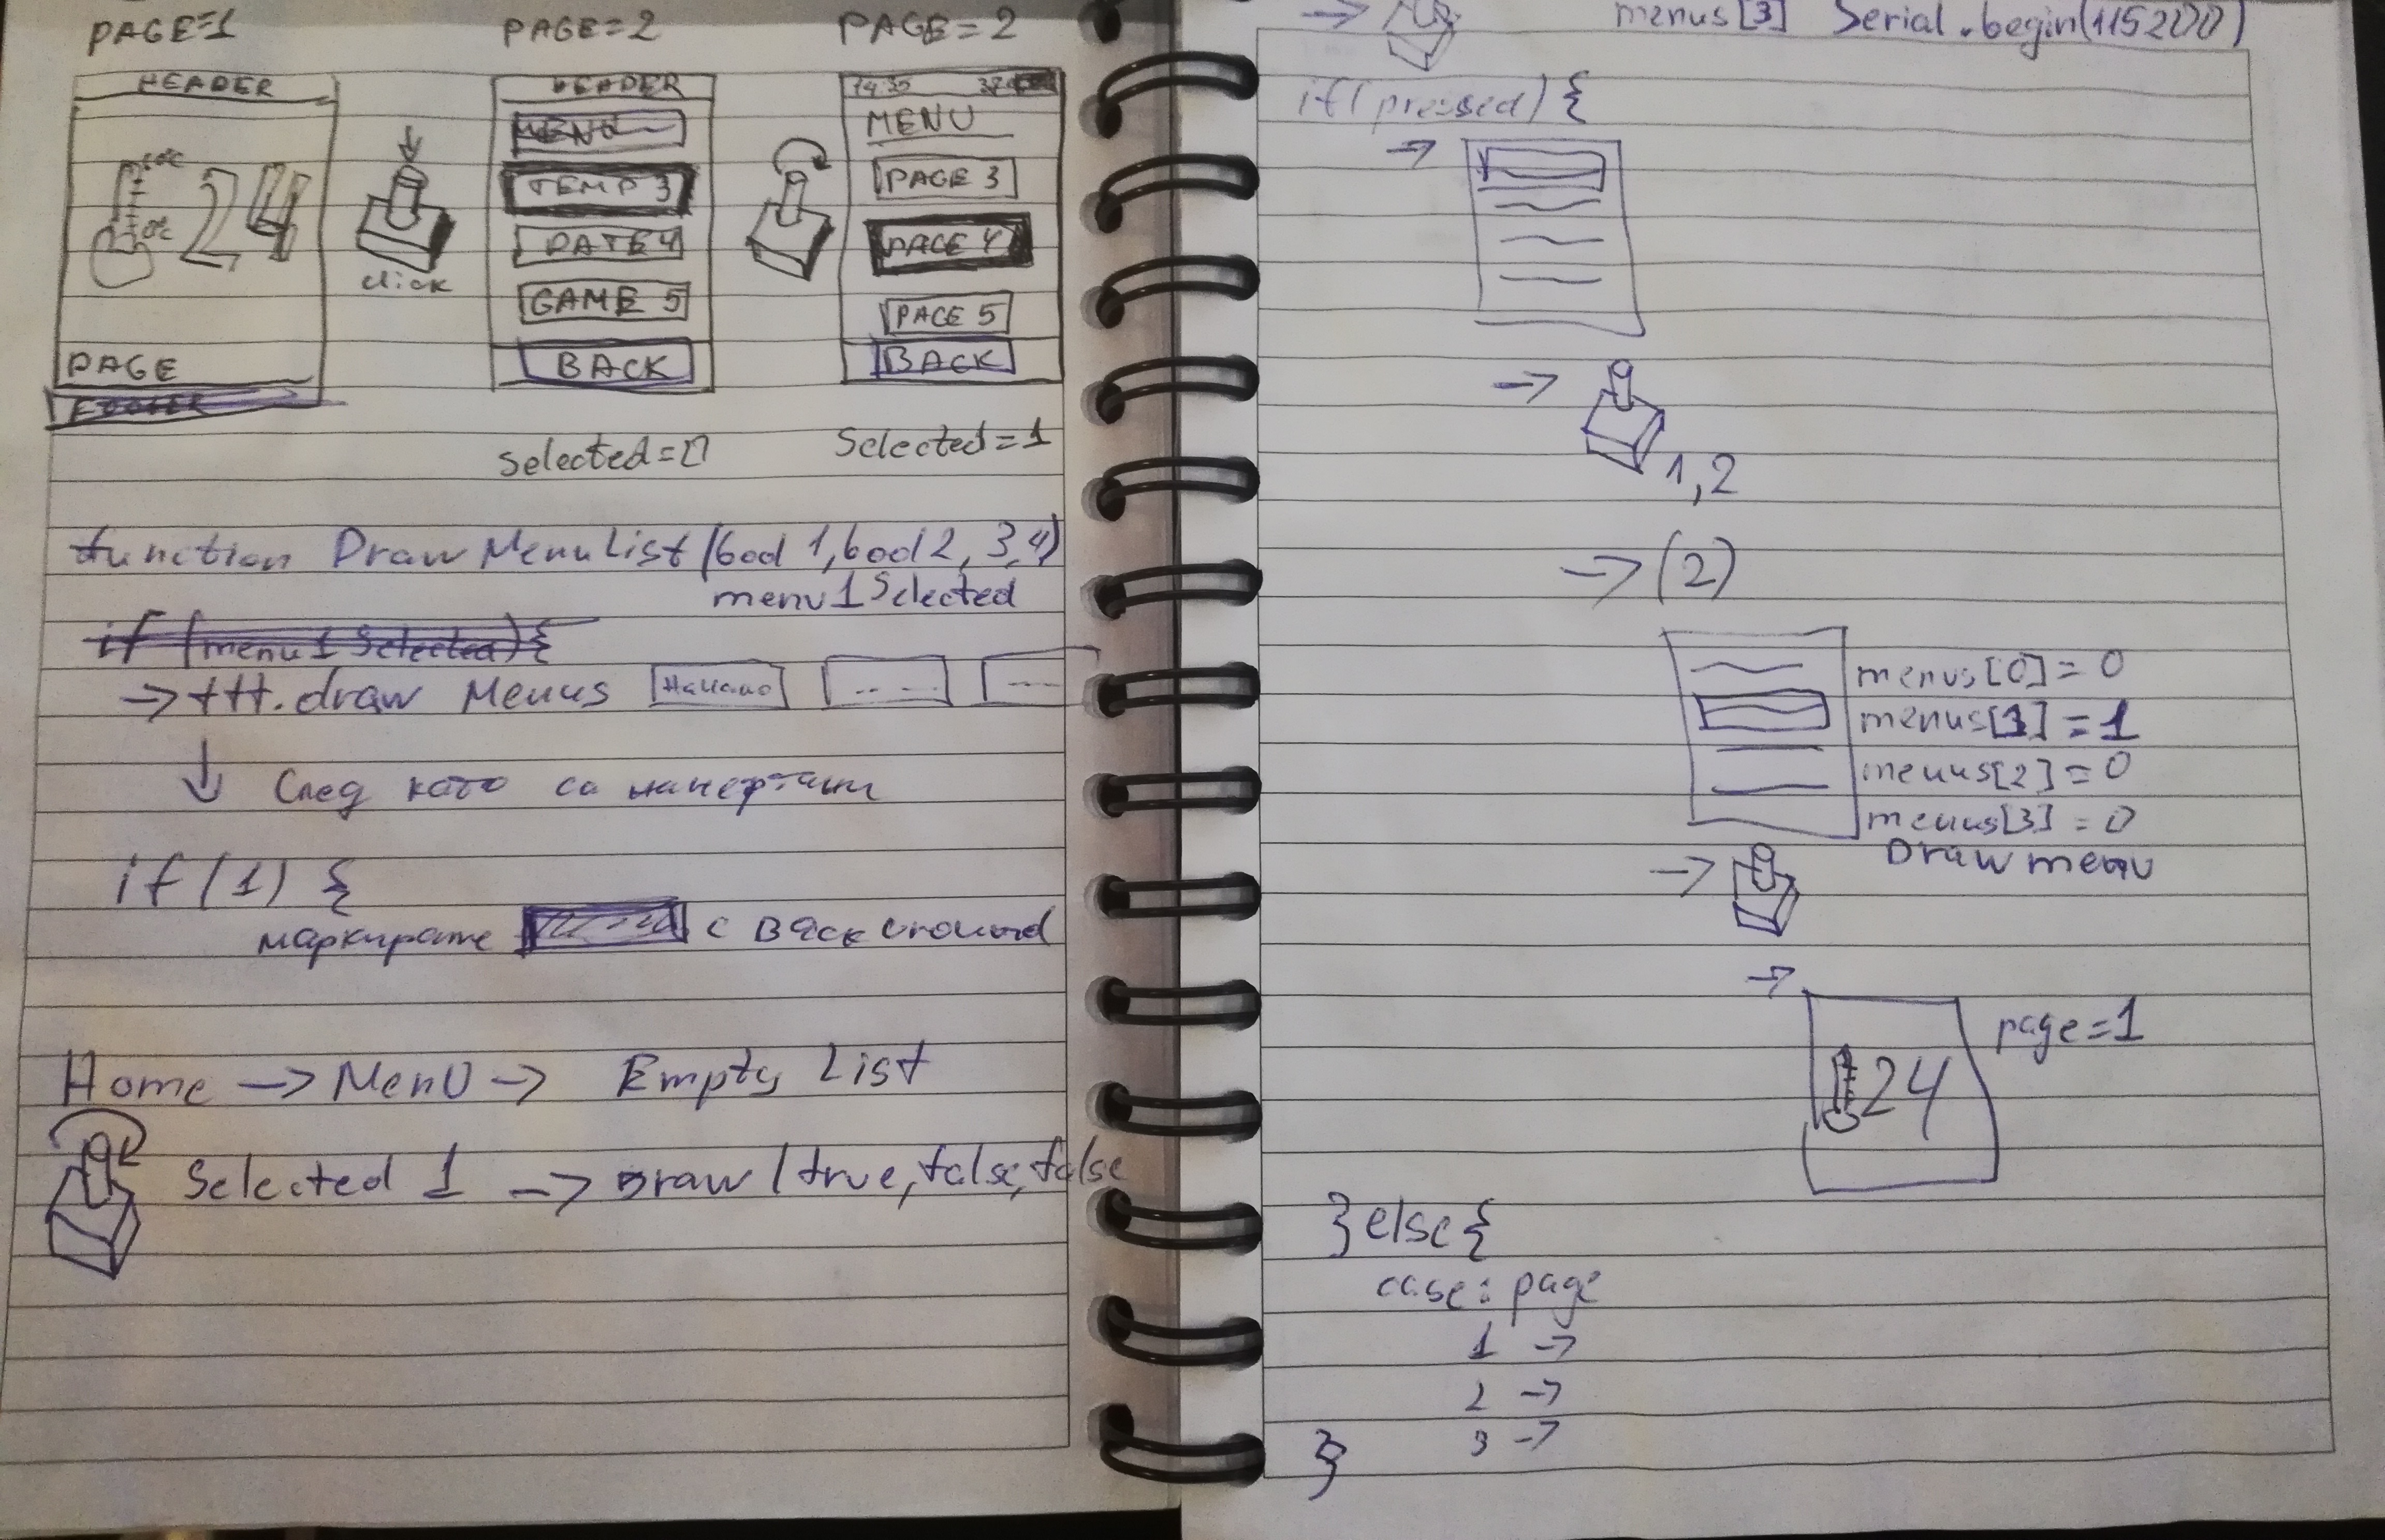 PAGE=1 PAGE=2 PAGE=2
HEADER HEADER 14:35
MENU MENU
10°C
0°C
24
TEMP 3 PAGE 3
DATE 4 PAGE 4
click
GAME 5 PAGE 5
PAGE BACK BACK
FOOTER
selected=0 Selected=1
function DrawMenuList(bool 1, bool 2, 3,4)
menu1Selected
if (menu1Selected){
→ tft.draw Menus Начало .. .. ...
↓ След като са начертани
if (1) {
маркираме с Background
Home → Menu → Empty List
Selected 1 → Draw (true, false, false
→ menus[3] Serial.begin(115200)
if(pressed) {
→
→
1,2
→ (2)
menus[0]=0
menus[1]=1
menus[2]=0
menus[3]=0
Draw menu
→
→
page=1
24
}else{
case: page
1 →
2 →
3 →
}